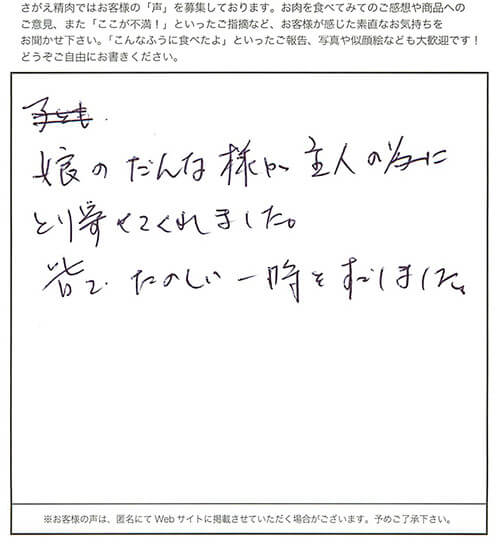 さがえ精肉ではお客様の「声」を募集しております。お肉を食べてみてのご感想や商品への
ご意見、また「ここが不満！」といったご指摘など、お客様が感じた素直なお気持ちを
お聞かせ下さい。「こんなふうに食べたよ」といったご報告、写真や似顔絵なども大歓迎です！
どうぞご自由にお書きください。
子ども
娘のだんな様が、主人の為に
とり寄せてくれました。
皆で、たのしい一時をすごしました。
※お客様の声は、匿名にて Web サイトに掲載させていただく場合がございます。予めご了承下さい。